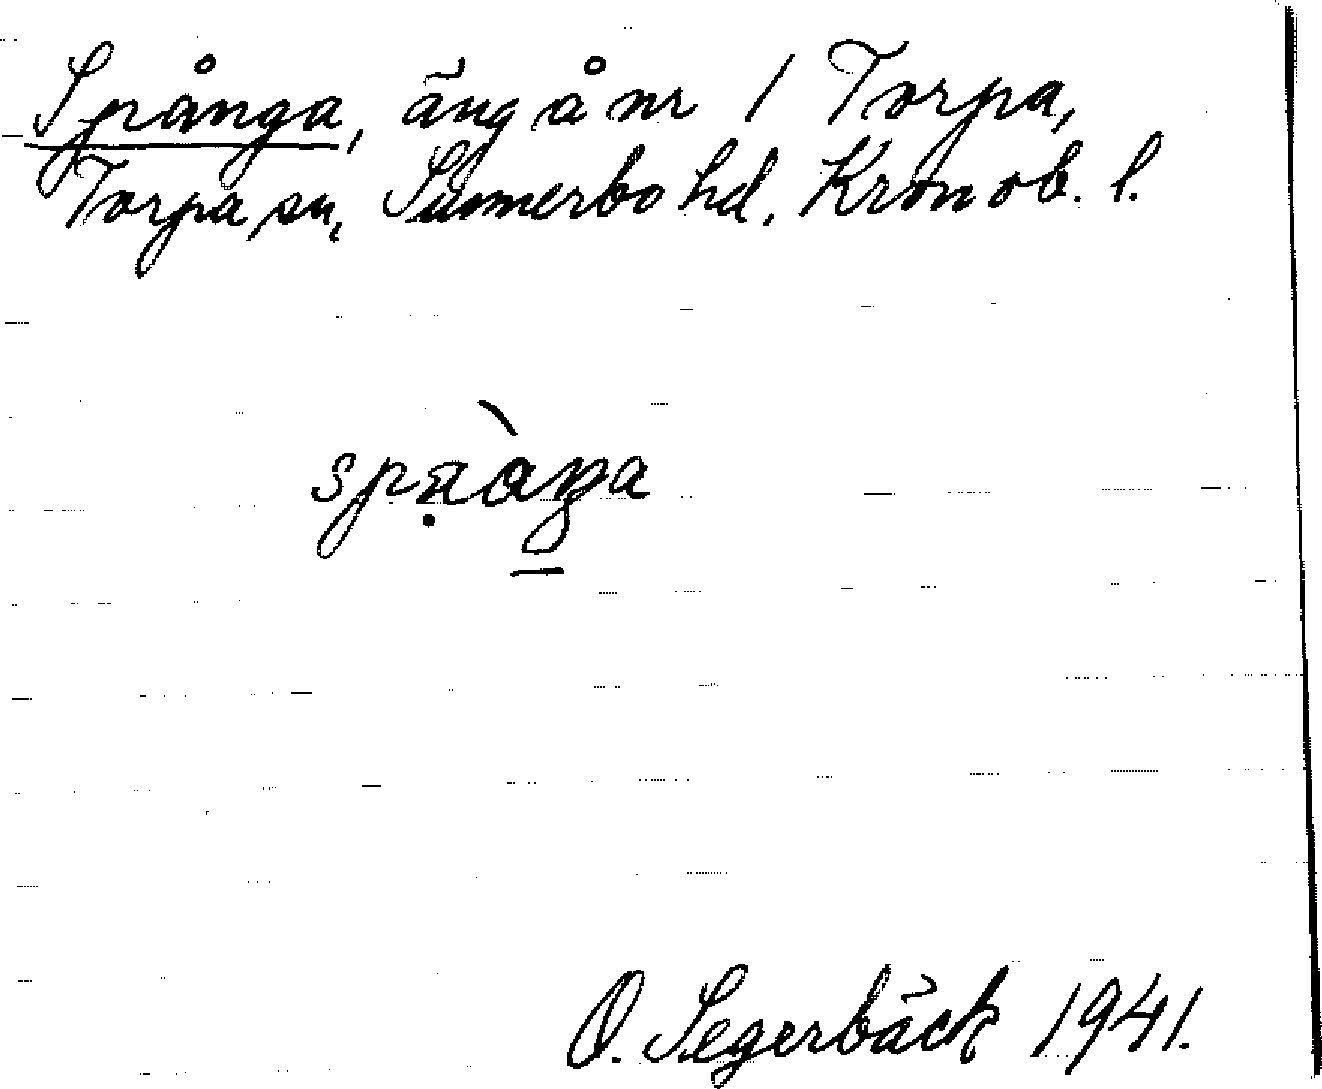 Spånga, äng å nr 1 Torpa,
Torpa sn, Sunnerbo hd, Kronob. l.
O. Segerbäck 1941.